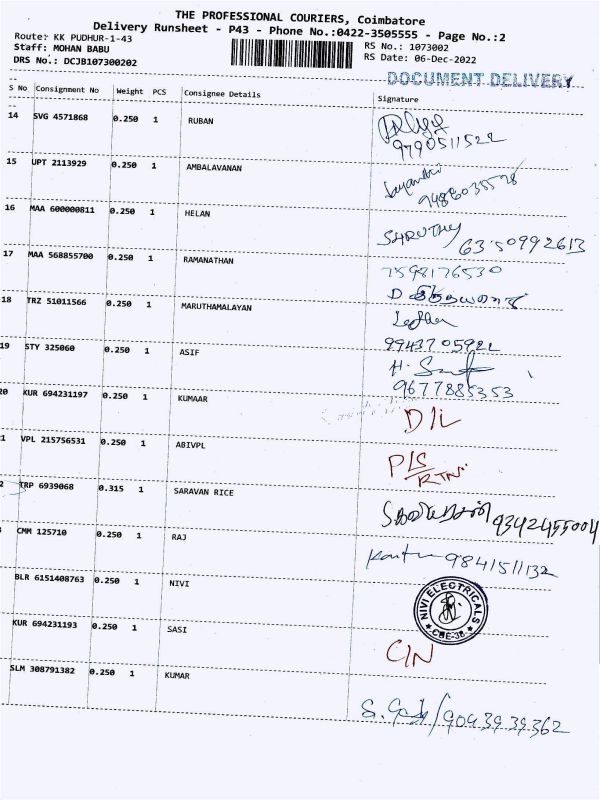 THE PROFESSIONAL COURIERS, Coimbatore
Delivery Runsheet - P43 - Phone No.:0422-3505555 - Page No.:2
Route: KK PUDHUR-1-43
RS No.: 1073002
Staff: MOHAN BABU
RS Date: 06-Dec-2022
DRS No.: DCJB107300202
DOCUMENT DELIVERY
S No Consignment No Weight PCS Consignee Details Signature
14 SVG 4571868 0.250 1 RUBAN
9790511522
15 UPT 2113929 0.250 1 AMBALAVANAN
Jayanthi
9486035578
16 MAA 600000811 0.250 1 HELAN
SHRUTHY 6350992613
17 MAA 568855700 0.250 1 RAMANATHAN
7598176530
18 TRZ 51011566 0.250 1 MARUTHAMALAYAN
9943705922
19 STY 325060 0.250 1 ASIF
9677885353
20 KUR 694231197 0.250 1 KUMAAR
D/L
1 VPL 215756531 0.250 1 ABIVPL
P/S
RTN
2 TRP 6939068 0.315 1 SARAVAN RICE
9342455004
CMM 125710 0.250 1 RAJ
9841511132
BLR 6151408763 0.250 1 NIVI
NIVI ELECTRICALS
CBE-38
KUR 694231193 0.250 1 SASI
C/N
SLM 308791382 0.250 1 KUMAR
9093939362